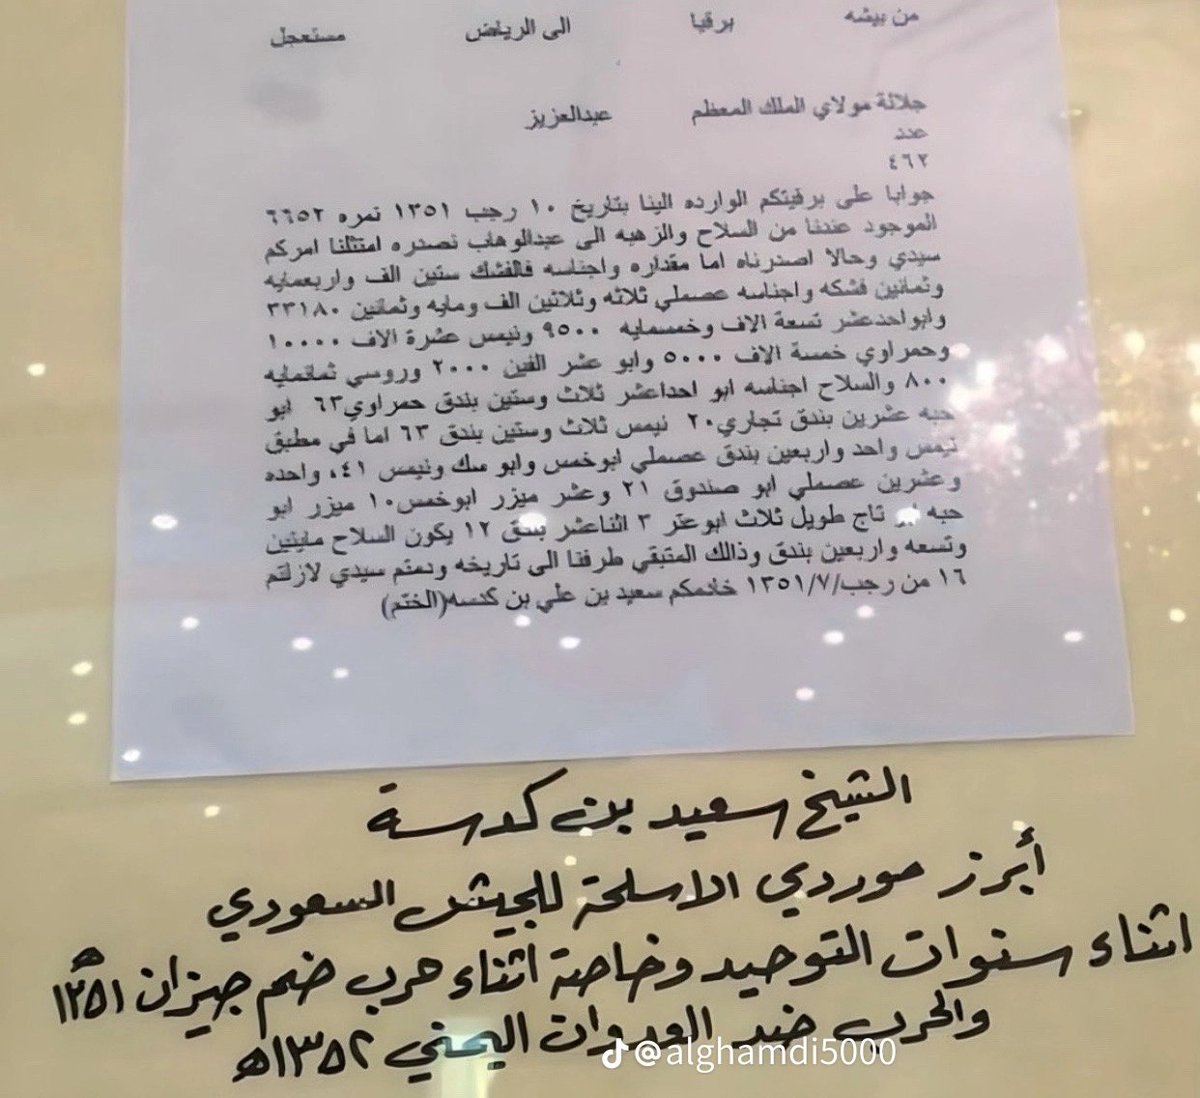 من بيشه برقيا الى الرياض مستعجل
جلالة مولاي الملك المعظم عبدالعزيز
عدد
٤٦٢
جوابا على برقيتكم الوارده الينا بتاريخ ١٠ رجب ١٣٥١ نمره ٦٦٥٢
الموجود عندنا من السلاح والزهبه الى عبدالوهاب نصدره امتثلنا امركم
سيدي وحالا اصدرناه اما مقداره واجناسه فالفشك ستين الف واربعمايه
وثمانين فشكه واجناسه عصملي ثلاثه وثلاثين الف ومايه وثمانين ٣٣١٨٠
وابواحدعشر تسعة الاف وخمسمايه ٩٥٠٠ ونيمس عشرة الاف ١٠٠٠٠
وحمراوي خمسة الاف ٥٠٠٠ وابو عشر الفين ٢٠٠٠ وروسي ثمانمايه
٨٠٠ والسلاح اجناسه ابو احداعشر ثلاث وستين بندق حمراوي٦٣ ابو
حبه عشرين بندق تجاري٢٠ نيمس ثلاث وستين بندق ٦٣ اما في مطبق
نيمس واحد واربعين بندق عصملي ابوخمس وابو سك ونيمس ٤١، واحده
وعشرين عصملي ابو صندوق ٢١ وعشر ميزر ابوخمس١٠ ميزر ابو
حبه تاج طويل ثلاث ابوعشر ٣ اثناعشر بندق ١٢ يكون السلاح مايتين
وتسعه واربعين بندق وذالك المتبقي طرفنا الى تاريخه ودمتم سيدي لازلتم
١٦ من رجب/١٣٥١/٧ خادمكم سعيد بن علي بن كدسه(الختم)
الشيخ سعيد بن كدسة
أبرز موردي الاسلحة للجيش السعودي
اثناء سنوات التوحيد وخاصة اثناء حرب ضم جيزان ١٣٥١هـ
والحرب ضد العدوان اليمني ١٣٥٢هـ
@alghamdi5000